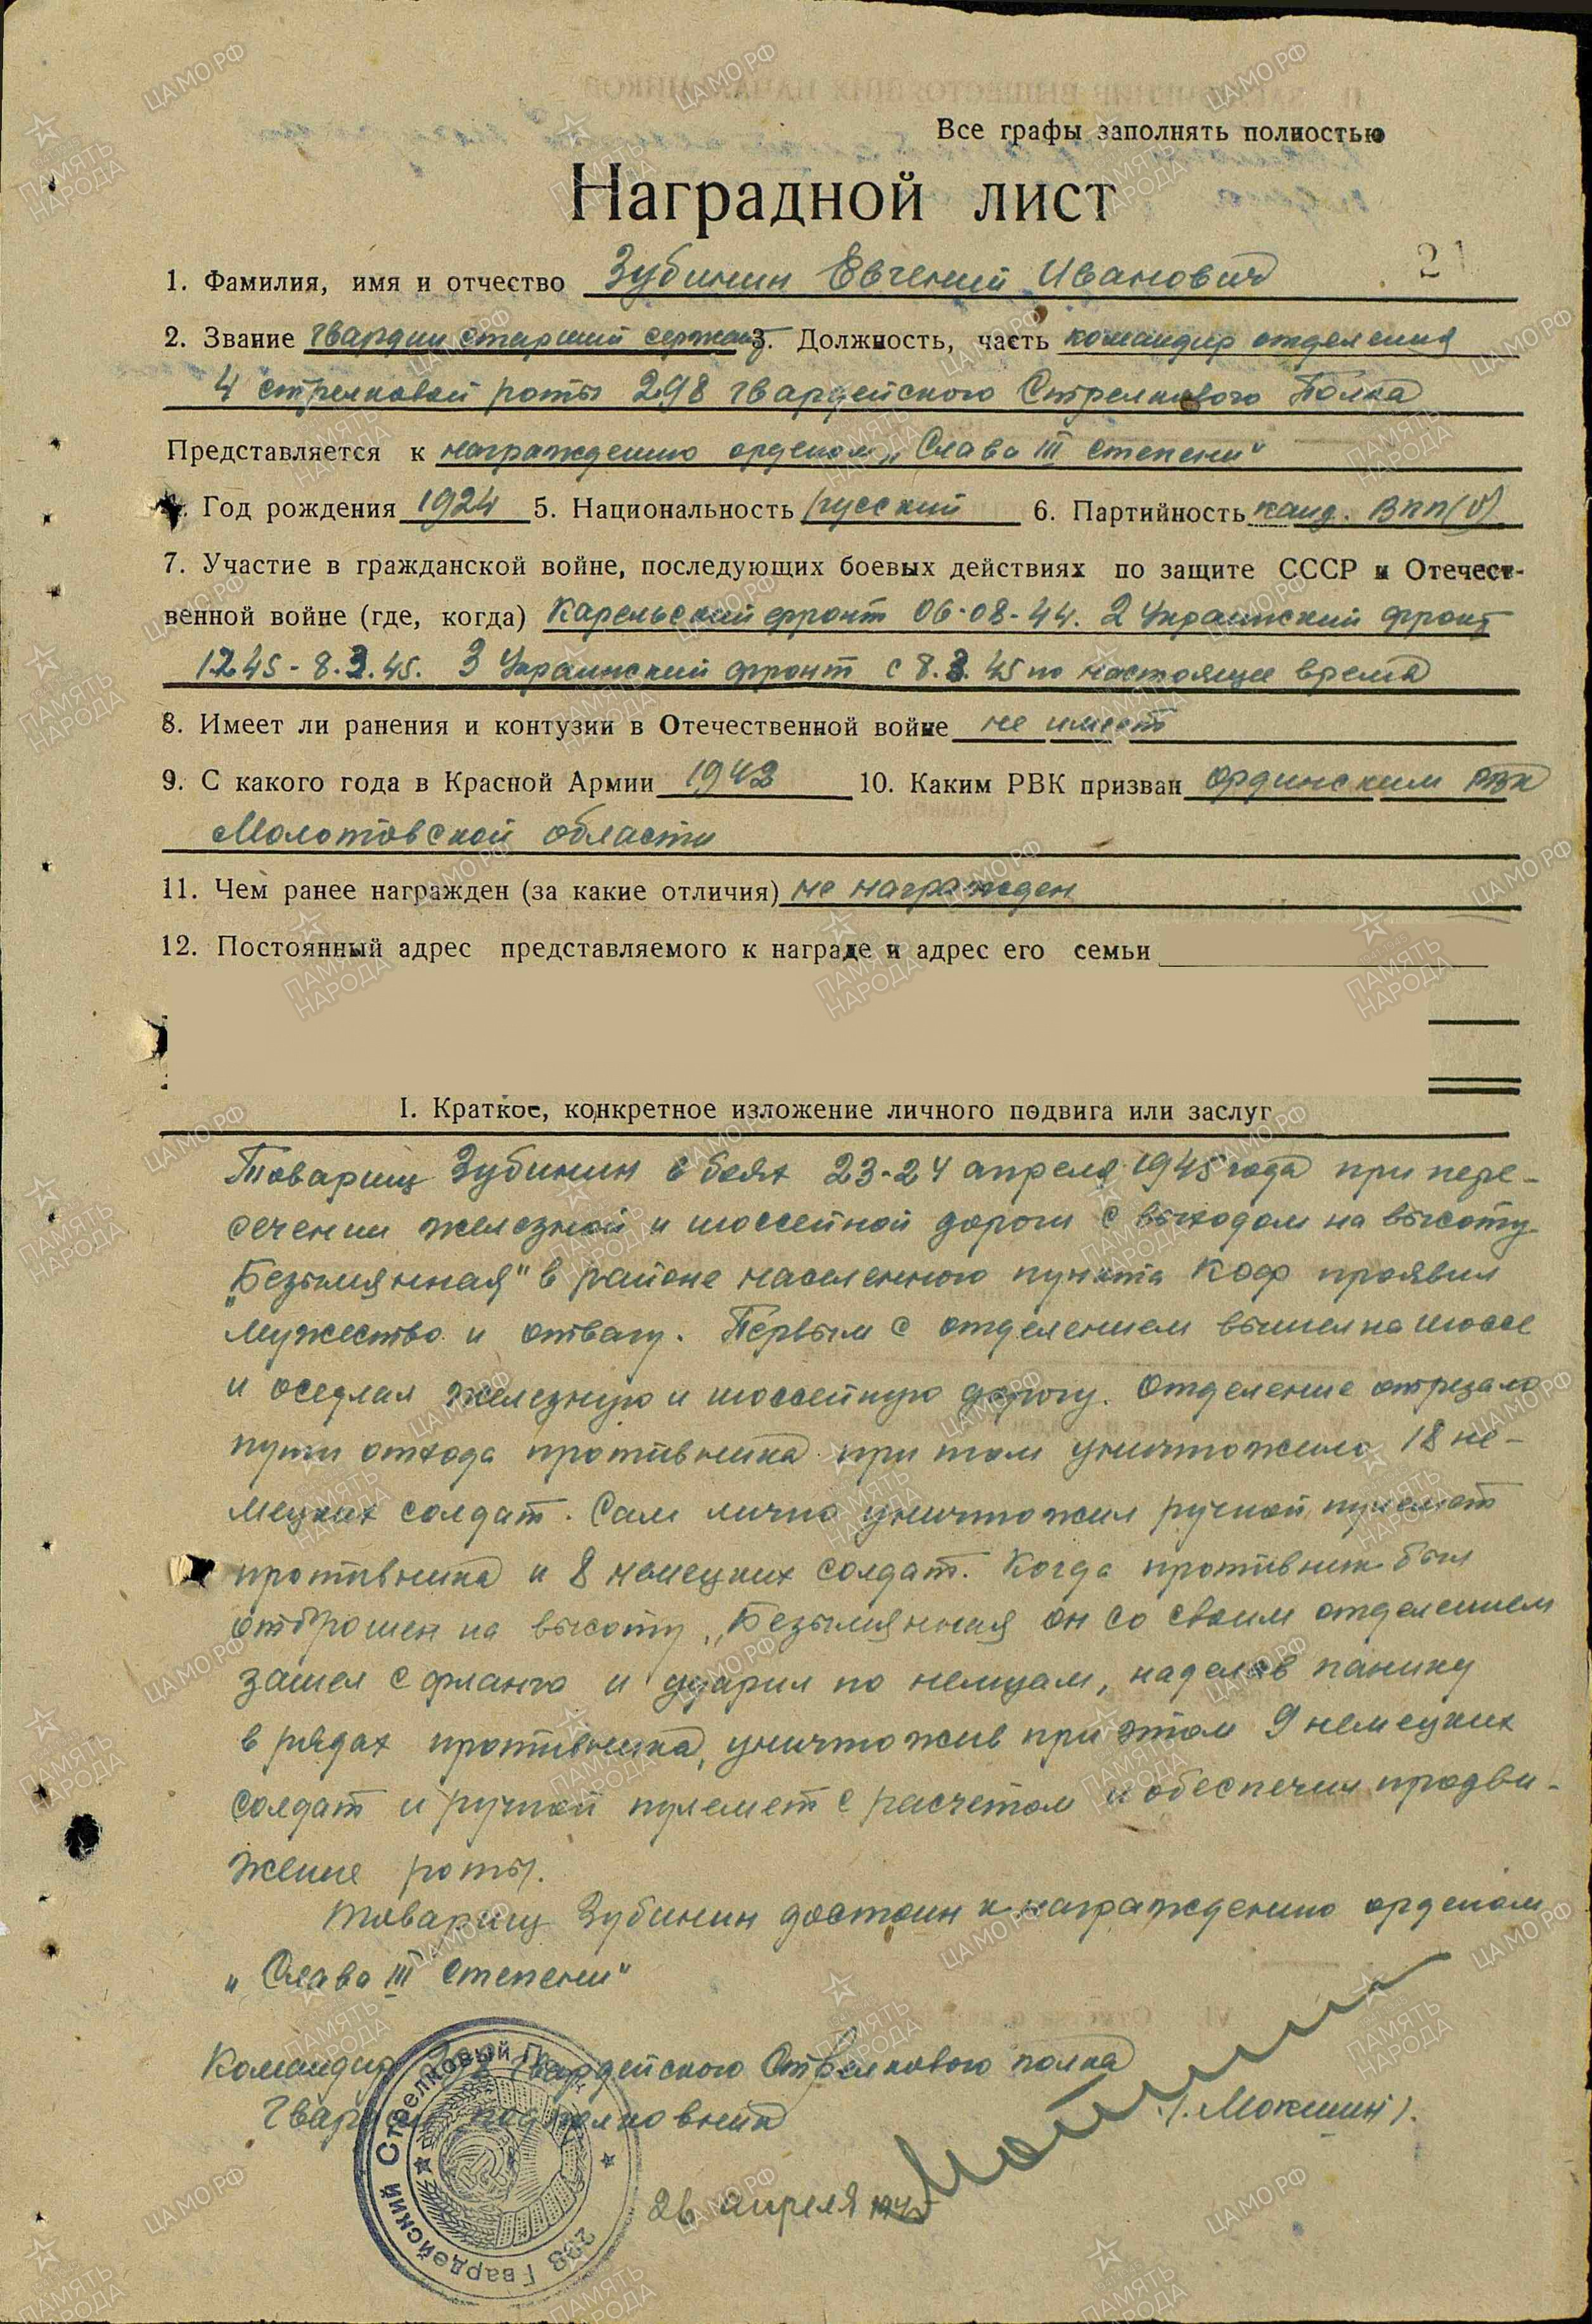 Все графы заполнять полностью
Наградной лист
21
1. Фамилия, имя и отчество Зубинин Евгений Иванович
2. Звание гвардии старший сержант 3. Должность, часть командир отделения
4 стрелковой роты 298 гвардейского Стрелкового Полка
Представляется к награждению орденом „Слава III степени"
Год рождения 1924 5. Национальность русский 6. Партийность канд. ВКП(б)
7. Участие в гражданской войне, последующих боевых действиях по защите СССР и Отечест-
венной войне (где, когда) Карельский фронт 06-08-44. 2 Украинский фронт
8.3.45. 3 Украинский фронт с 8.3.45 по настоящее время
8. Имеет ли ранения и контузии в Отечественной войне не имеет
9. С какого года в Красной Армии 1942 10. Каким РВК призван Ординским РВК
Молотовской области
11. Чем ранее награжден (за какие отличия) не награжден
12. Постоянный адрес представляемого к награде и адрес его семьи
I. Краткое, конкретное изложение личного подвига или заслуг
Товарищ Зубинин в боях 23-24 апреля 1945 года при пере-
сечении железной и шоссейной дороги с выходом на высоту
„Безымянная" в районе населенного пункта Коф проявил
мужество и отвагу. Первым с отделением вышел на шоссе
и оседлал железную и шоссейную дорогу. Отделение отрезало
пути отхода противника при том уничтожило 18 не-
мецких солдат. Сам лично уничтожил ручной пулемет
противника и 8 немецких солдат. Когда противник был
отброшен на высоту „Безымянная он со своим отделением
зашел с фланга и ударил по немцам, наделав панику
в рядах противника, уничтожив при этом 9 немецких
солдат и ручной пулемет с расчетом и обеспечил продви-
жение роты.
Товарищ Зубинин достоин к награждению орденом
„Слава III степени"
Командир 298 Гвардейского Стрелкового полка
Гвардии подполковник
(Мокшин).
26 апреля 1945
298 Гвардейский Стрелковый Полк
ЦАМО РФ
ПАМЯТЬ НАРОДА